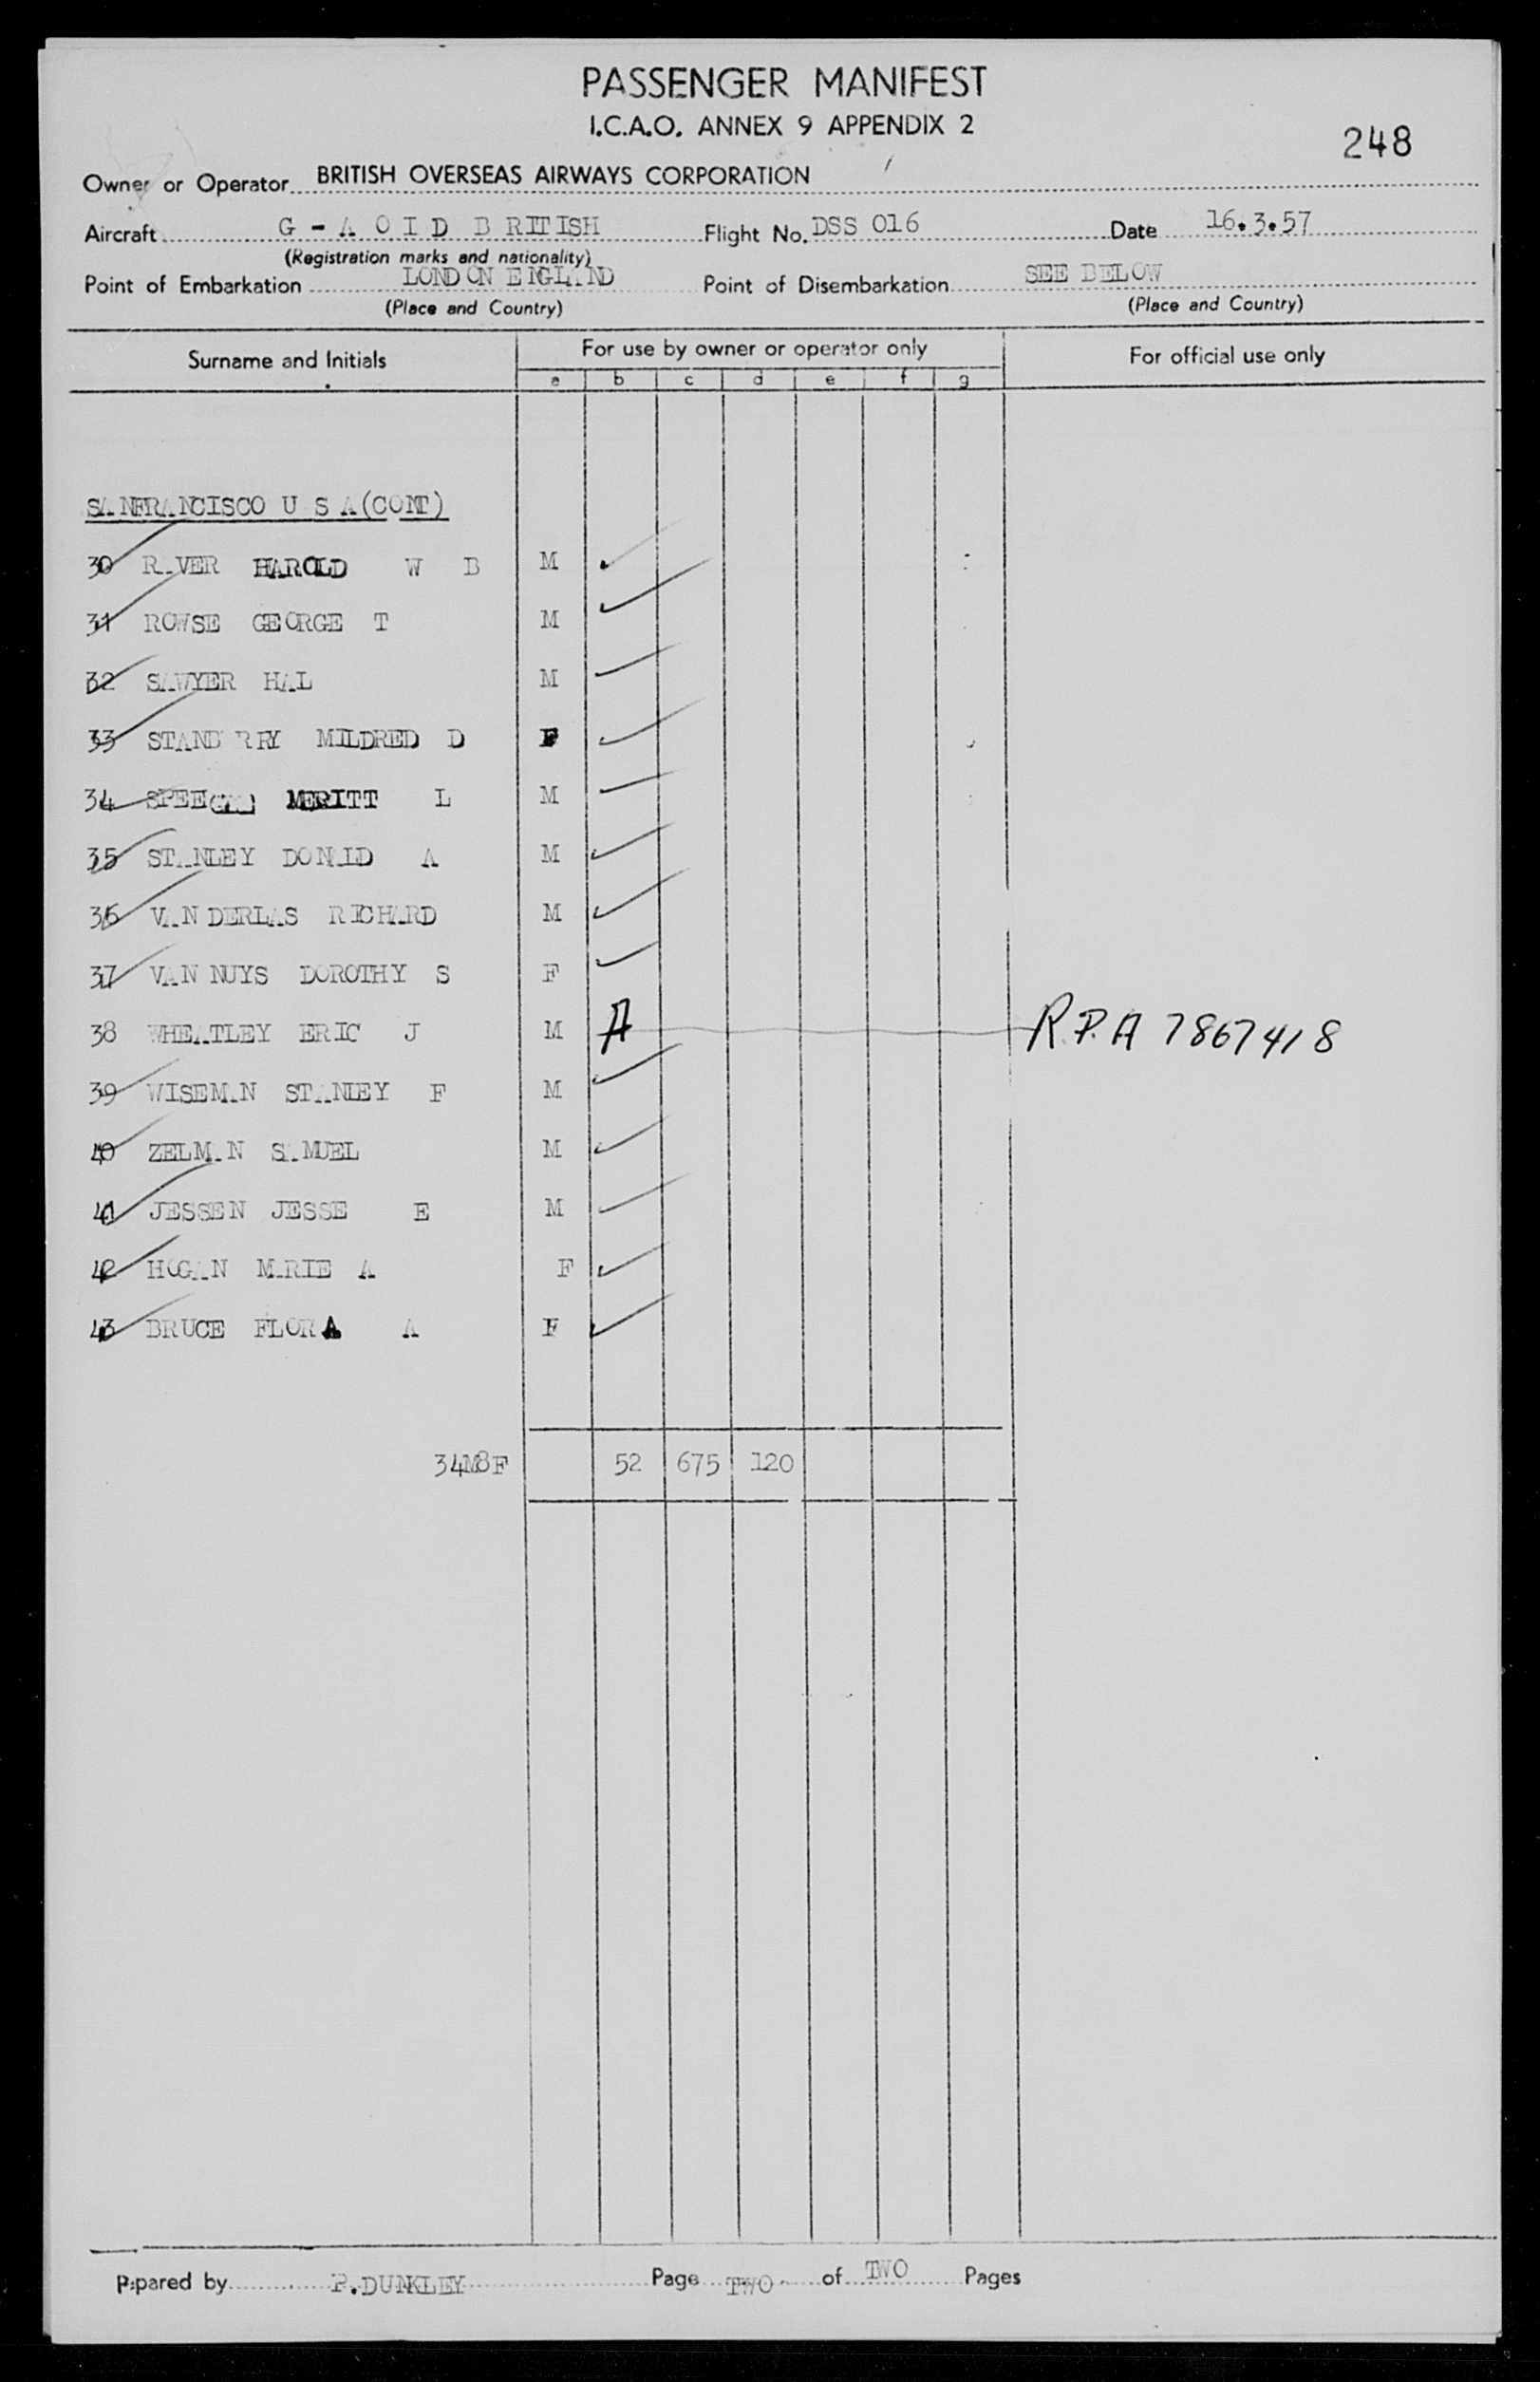 PASSENGER MANIFEST
I.C.A.O. ANNEX 9 APPENDIX 2
248
Owner or Operator BRITISH OVERSEAS AIRWAYS CORPORATION
Aircraft G - A O I D BRITISH Flight No. DSS 016 Date 16.3.57
(Registration marks and nationality)
Point of Embarkation LONDON ENGLAND Point of Disembarkation SEE BELOW
(Place and Country) (Place and Country)
Surname and Initials For use by owner or operator only For official use only
a b c d e f g
SANFRANCISCO U S A (CONT)
30 RAVER HAROLD W B M
31 ROWSE GEORGE T M
32 SAWYER HAL M
33 MILDRED D F
34 MERITT L M
35 STANLEY DONALD A M
36 VAN DERLAS RICHARD M
37 VAN NUYS DOROTHY S F
38 WHEATLEY ERIC J M A R.P.A 7867418
39 WISEMAN STANLEY F M
40 ZELMAN SAMUEL M
41 JESSEN JESSE E M
42 HOGAN MARIE A F
43 BRUCE FLORA A F
34M8F 52 675 120
Prpared by P.DUNKLEY Page TWO of TWO Pages